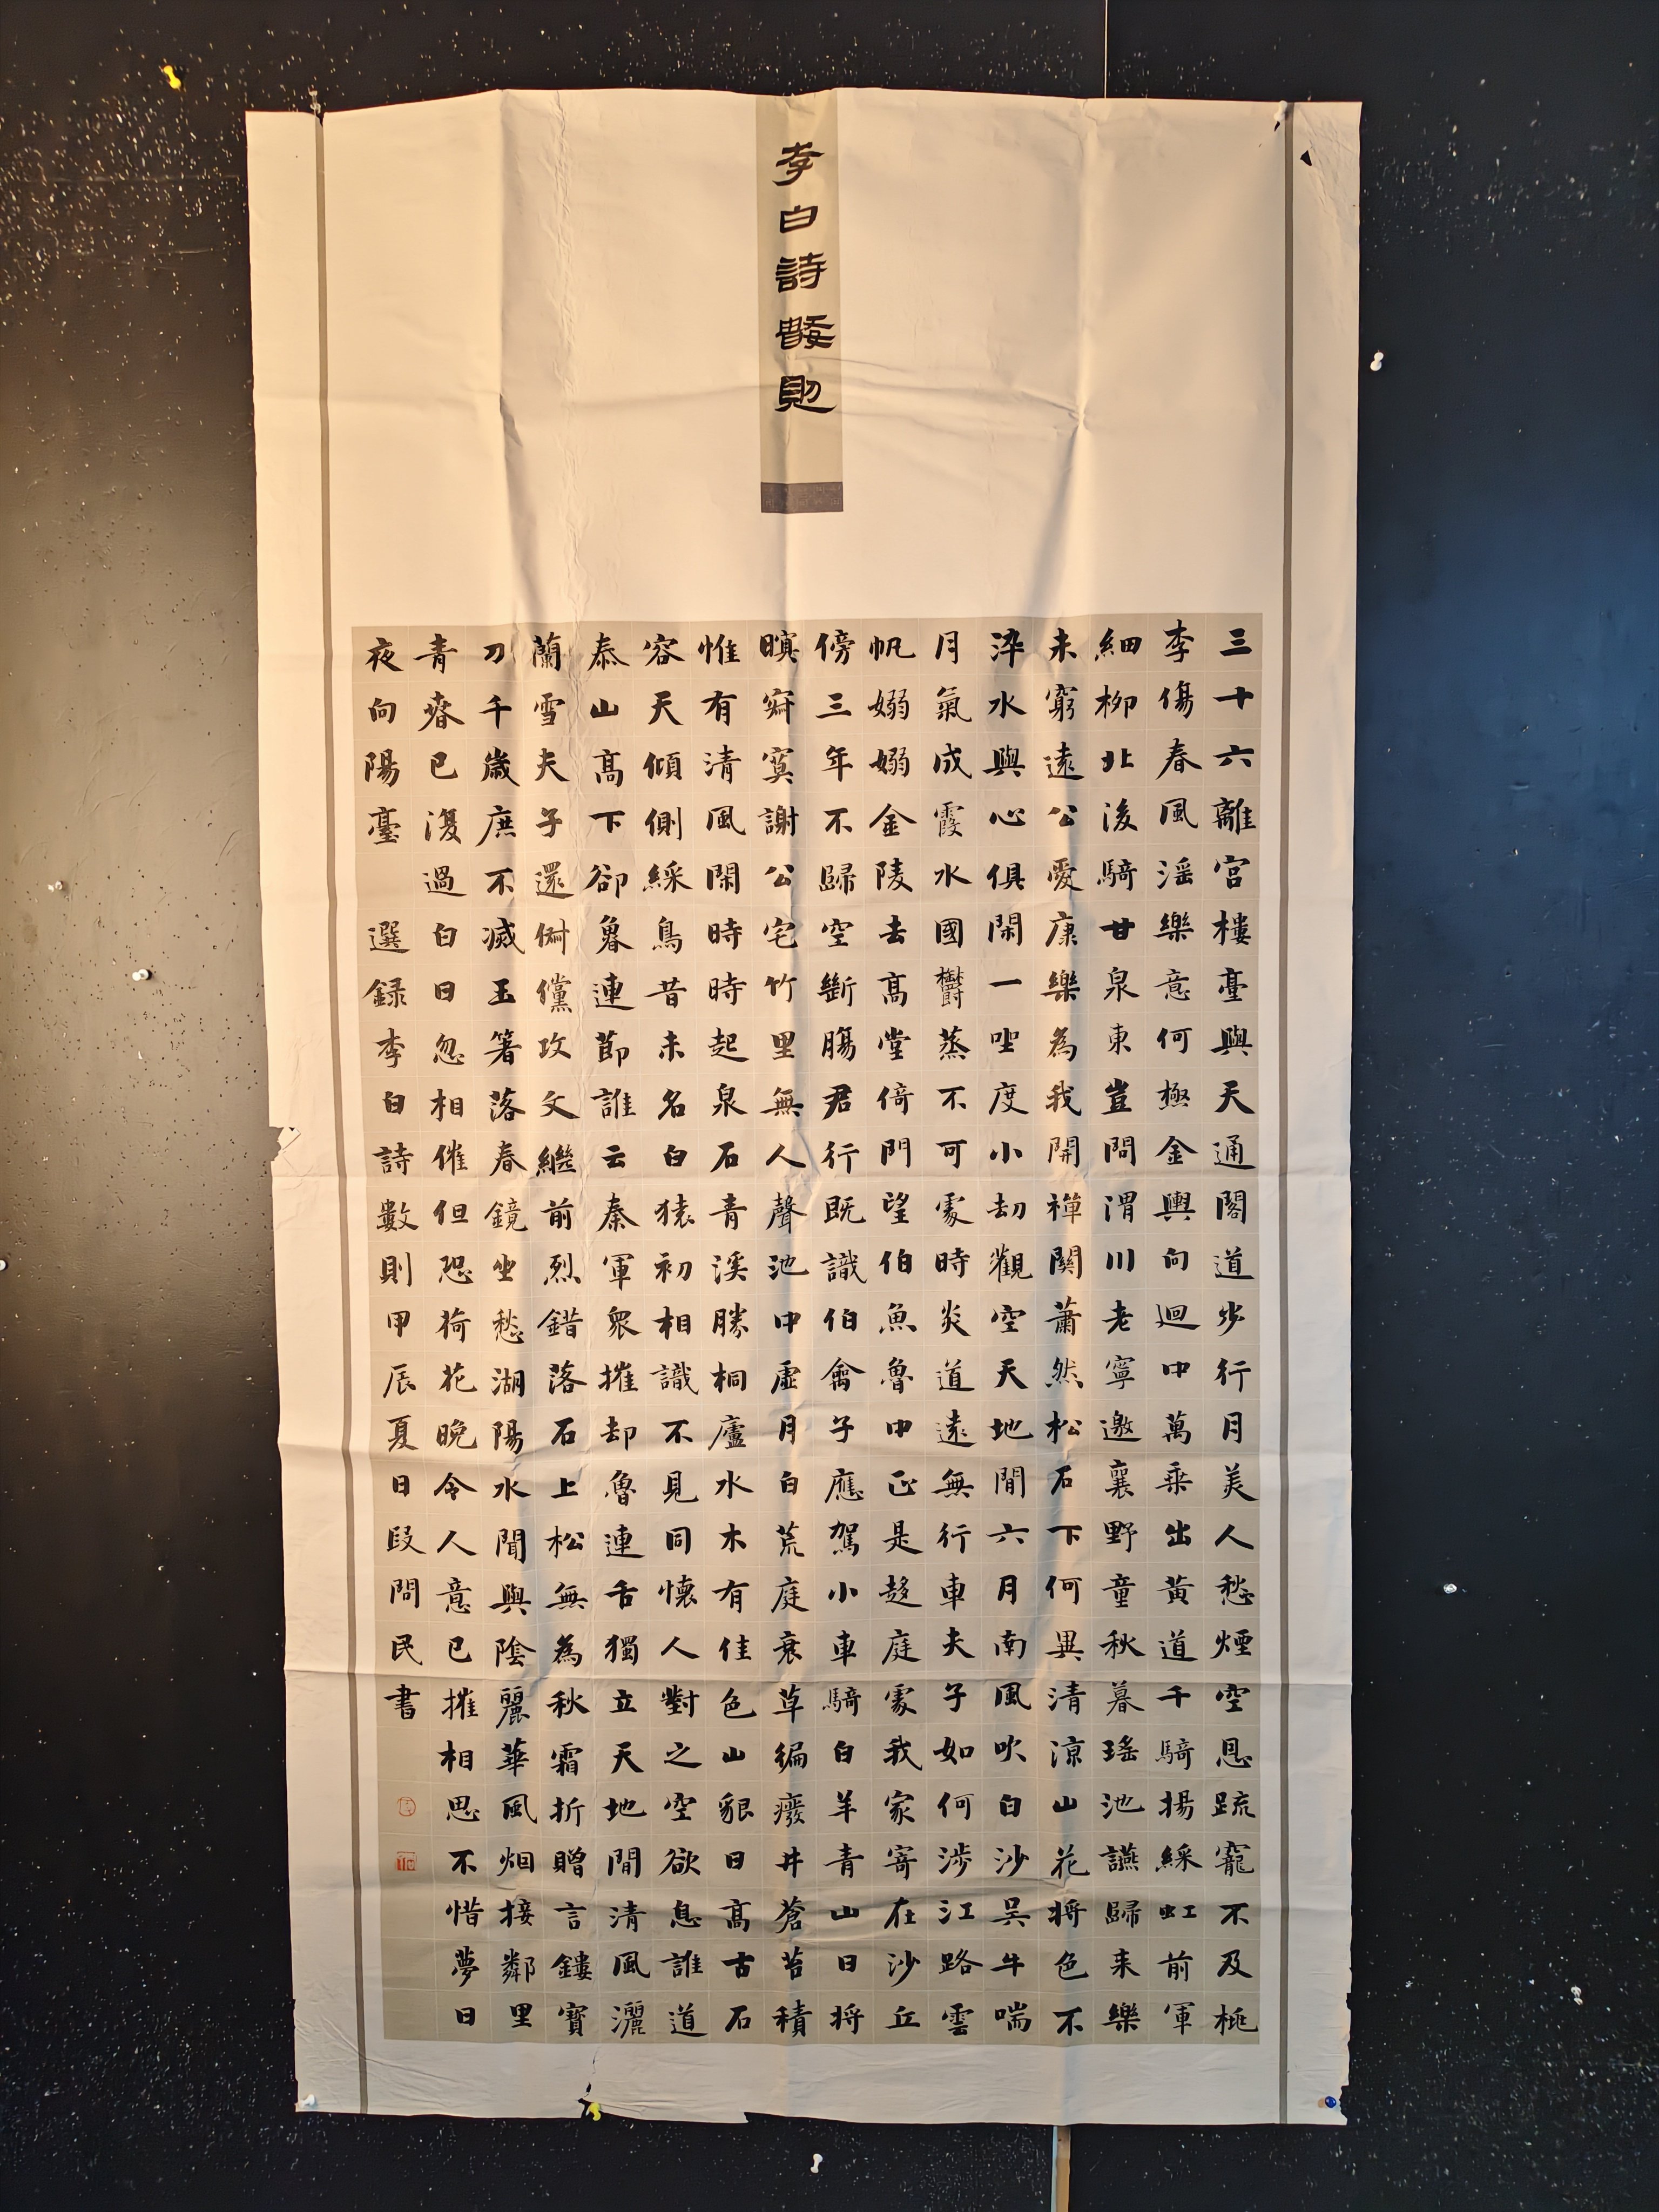 李白詩數則
三十六離宮樓臺與天通閣道步行月美人愁煙空恩疏寵不及桃
李傷春風淫樂意何極金輿向迴中萬乘出黃道千騎揚綵虹前軍
細柳北後騎甘泉東豈問渭川老寧邀襄野童秋暮瑤池讌歸来樂
未窮遠公愛康樂為我開禪關蕭然松石下何異清涼山花將色不
染水與心俱閑一坐度小劫觀空天地間六月南風吹白沙吳牛喘
月氣成霞水國鬱蒸不可處時炎道遠無行車夫子如何涉江路雲
帆嫋嫋金陵去高堂倚門望伯魚魯中正是趍庭處我家寄在沙丘
傍三年不歸空斷腸君行既識伯禽子應駕小車騎白羊青山日將
暝寂寞謝公宅竹里無人聲池中虛月白荒庭衰草徧癈井蒼苔積
惟有清風閑時時起泉石青溪勝桐廬水木有佳色山貌日高古石
容天傾側綵鳥昔未名白猿初相識不見同懷人對之空欲息誰道
泰山高下卻魯連節誰云秦軍眾摧却魯連舌獨立天地間清風灑
蘭雪夫子還倜儻攻文繼前烈錯落石上松無為秋霜折贈言鏤寶
刀千歲庶不滅玉箸落春鏡坐愁湖陽水聞與陰麗華風烟接鄰里
青春已復過白日忽相催但恐荷花晚令人意已摧相思不惜夢日
夜向陽臺 選録李白詩數則甲辰夏日段問民書